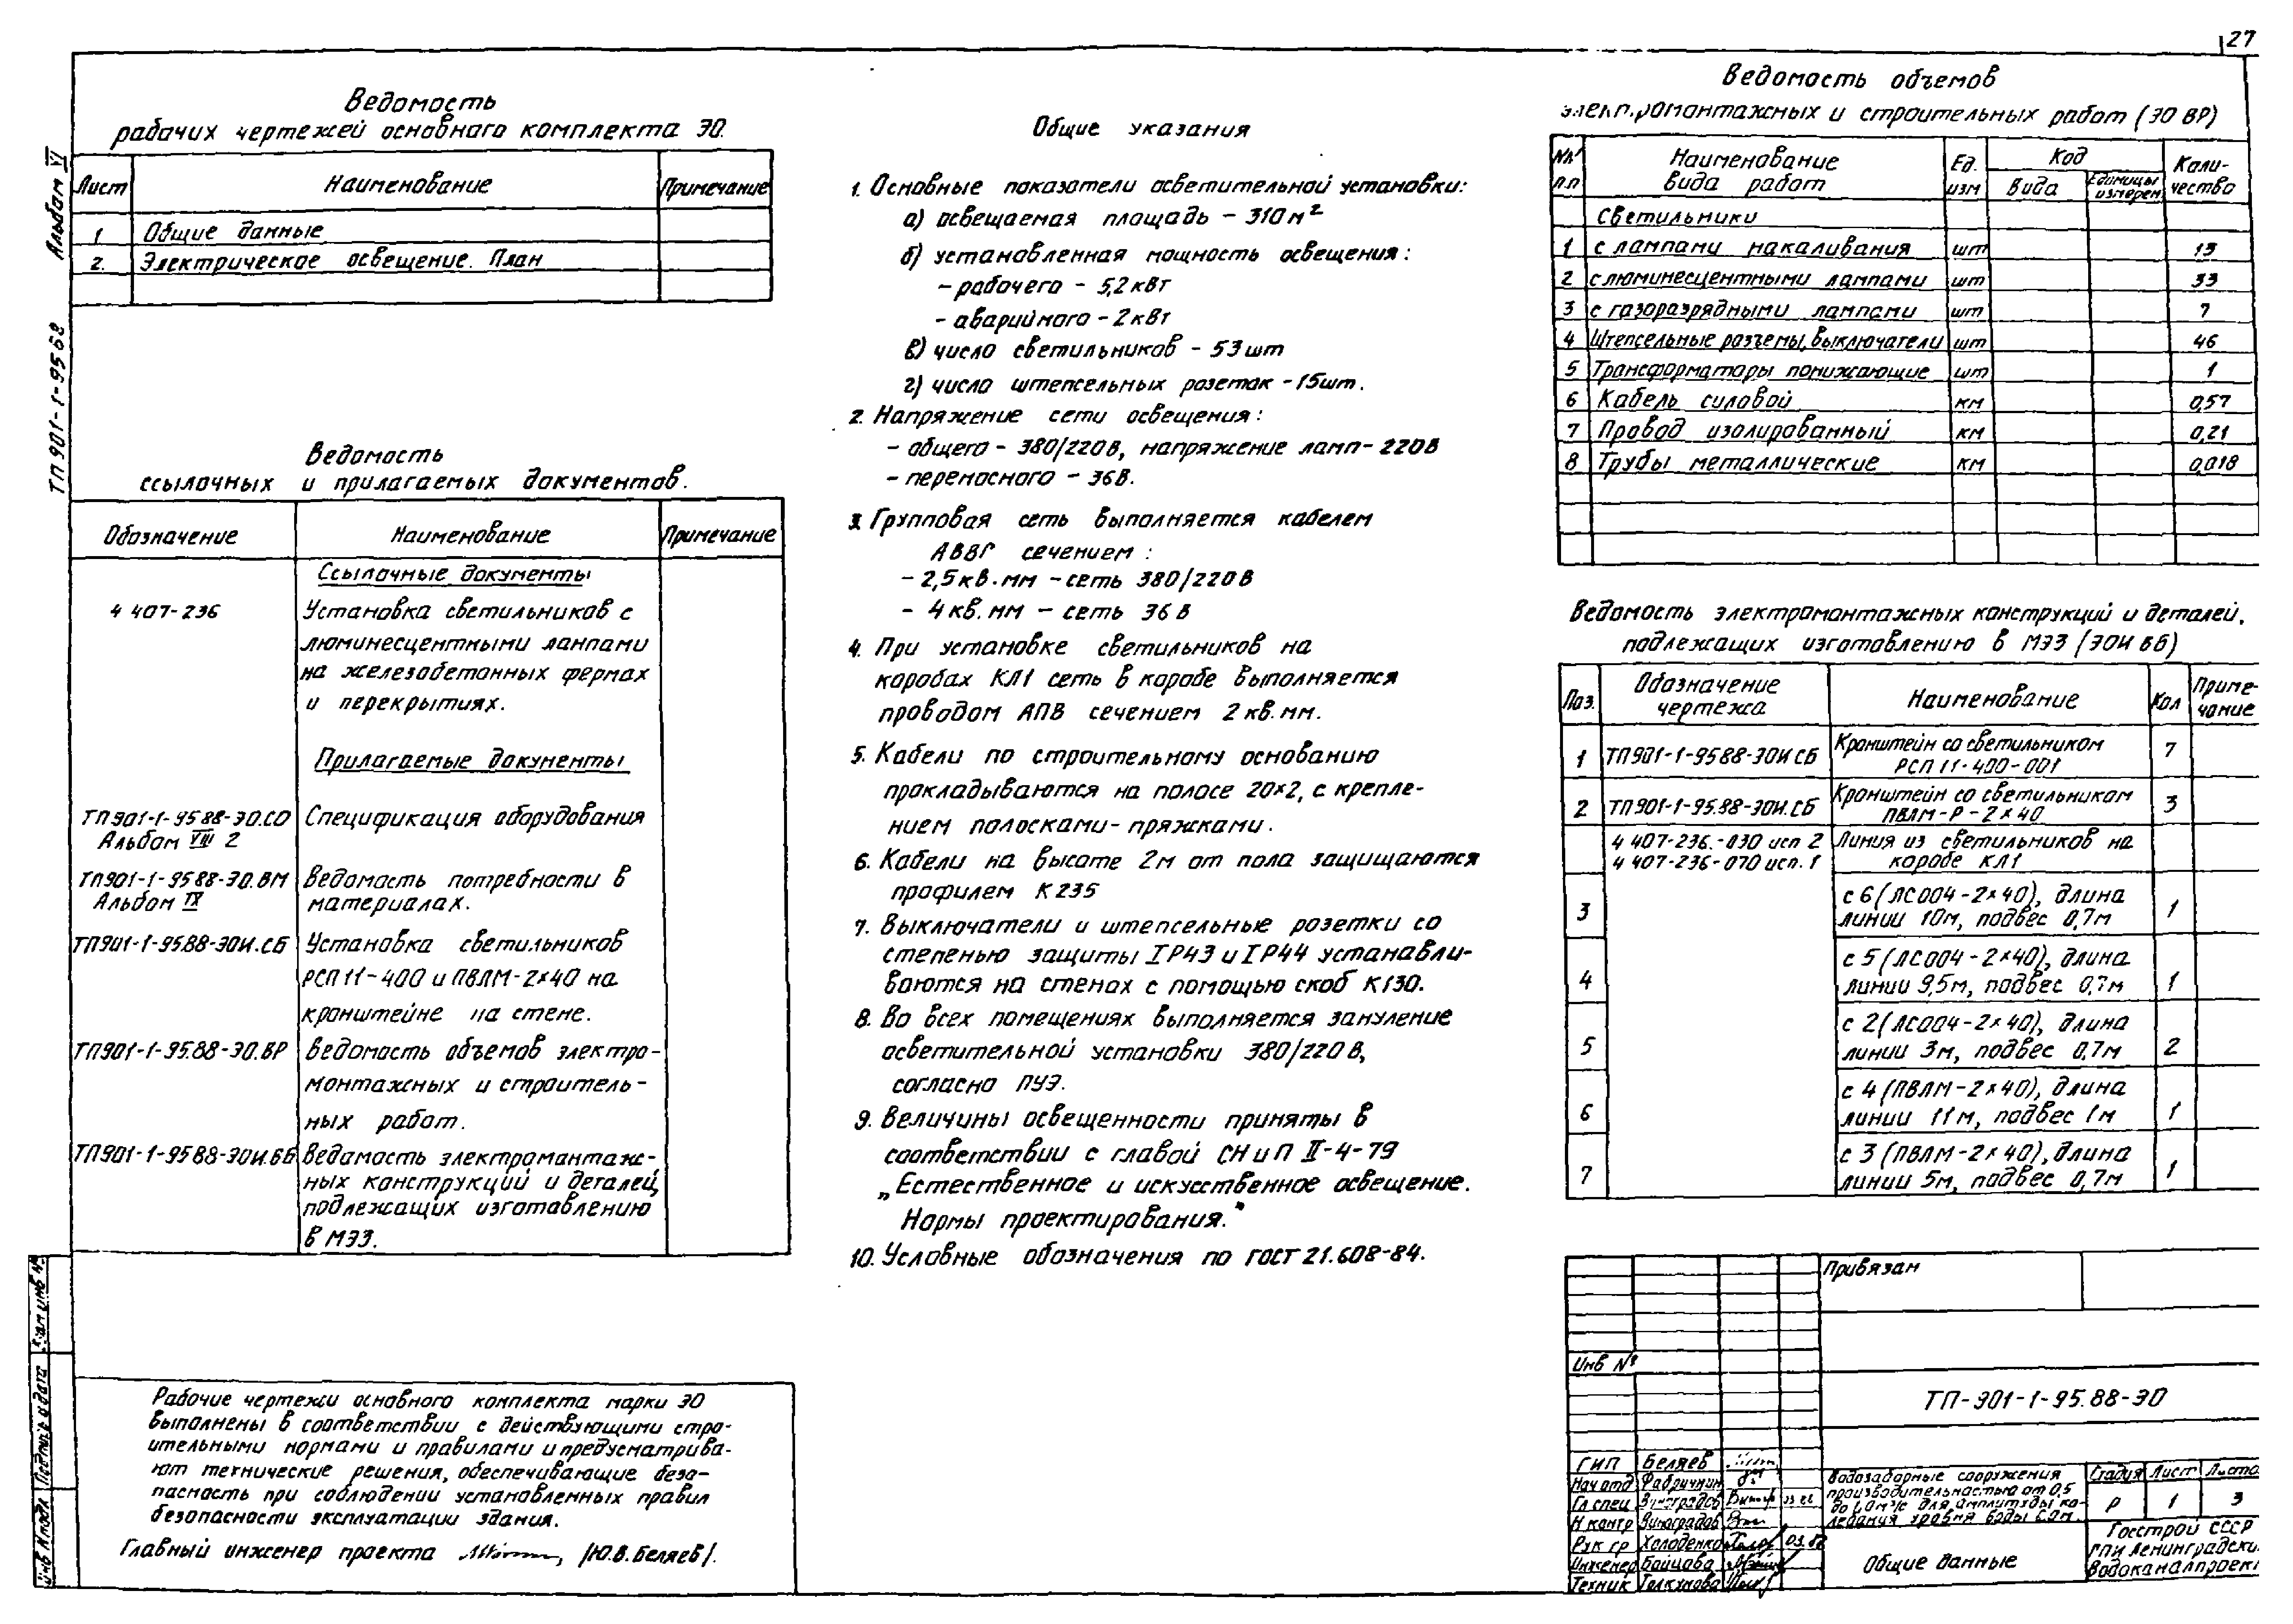 27
Альбом VI
ТП 901-1-95.88
Ведомость
рабочих чертежей основного комплекта ЭО.
Лист Наименование Примечание
1 Общие данные
2. Электрическое освещение. План
Ведомость
ссылочных и прилагаемых документов.
Обозначение Наименование Примечание
Ссылочные документы
4 407-236 Установка светильников с
люминесцентными лампами
на железобетонных фермах
и перекрытиях.
Прилагаемые документы
ТП901-1-95 88-ЭО.СО Спецификация оборудования
Альбом VIII 2
ТП901-1-95 88-ЭО.ВМ Ведомость потребности в
Альбом IX материалах.
ТП901-1-95.88-ЭОИ.СБ Установка светильников
РСП 11-400 и ПВЛМ-2×40 на
кронштейне на стене.
ТП901-1-95.88-ЭО.ВР Ведомость объемов электро-
монтажных и строитель-
ных работ.
ТП901-1-95 88-ЭОИ.ВБ Ведомость электромонтаж-
ных конструкций и деталей,
подлежащих изготовлению
в МЭЗ.
Рабочие чертежи основного комплекта марки ЭО
выполнены в соответствии с действующими стро-
ительными нормами и правилами и предусматрива-
ют технические решения, обеспечивающие безо-
пасность при соблюдении установленных правил
безопасности эксплуатации здания.
Главный инженер проекта /Ю.В.Беляев/.
Общие указания
1. Основные показатели осветительной установки:
а) освещаемая площадь - 310 м²
б) установленная мощность освещения:
- рабочего - 5,2 кВт
- аварийного - 2 кВт
в) число светильников - 53 шт
г) число штепсельных розеток - 15шт.
2. Напряжение сети освещения:
- общего - 380/220 В, напряжение ламп - 220 В
- переносного - 36 В.
3. Групповая сеть выполняется кабелем
АВВГ сечением:
- 2,5 кв.мм - сеть 380/220 В
- 4 кв.мм - сеть 36 В
4. При установке светильников на
коробах КЛ1 сеть в коробе выполняется
проводом АПВ сечением 2 кв.мм.
5. Кабели по строительному основанию
прокладываются на полосе 20×2, с крепле-
нием полосками-пряжками.
6. Кабели на высоте 2м от пола защищаются
профилем К 235
7. Выключатели и штепсельные розетки со
степенью защиты IP43 и IP44 устанавли-
ваются на стенах с помощью скоб К130.
8. Во всех помещениях выполняется зануление
осветительной установки 380/220 В,
согласно ПУЭ.
9. Величины освещенности приняты в
соответствии с главой СНиП II-4-79
„Естественное и искусственное освещение.
Нормы проектирования."
10. Условные обозначения по ГОСТ 21.608-84.
Ведомость объемов
электромонтажных и строительных работ (ЭО ВР)
№№ п.п Наименование вида работ Ед. изм Код Вида Единицы измерен. Коли-чество
Светильники
1 с лампами накаливания шт 13
2 с люминесцентными лампами шт 33
3 с газоразрядными лампами шт 7
4 Штепсельные разъемы, выключатели шт 46
5 Трансформаторы понижающие шт 1
6 Кабель силовой км 0,57
7 Провод изолированный км 0,21
8 Трубы металлические км 0,018
Ведомость электромонтажных конструкций и деталей,
подлежащих изготовлению в МЭЗ (ЭОИ ВБ)
Поз. Обозначение чертежа Наименование Кол Приме-чание
1 ТП901-1-95 88-ЭОИ СБ Кронштейн со светильником 7
РСП 11-400-001
2 ТП901-1-95.88-ЭОИ.СБ Кронштейн со светильником 3
ПВЛМ-Р-2×40
4 407-236.-030 исп 2 Линия из светильников на
4 407-236-070 исп. 1 коробе КЛ1
3 с 6 (ЛСО04-2×40), длина
линии 10м, подвес 0,7м 1
4 с 5 (ЛСО04-2×40), длина
линии 9,5м, подвес 0,7м 1
5 с 2 (ЛСО04-2×40), длина
линии 3м, подвес 0,7м 2
6 с 4 (ПВЛМ-2×40), длина
линии 11м, подвес 1м 1
7 с 3 (ПВЛМ-2×40), длина
линии 5м, подвес 0,7м 1
Привязан
Инв №
ТП-901-1-95.88-ЭО
ГИП Беляев
Нач отд Фабричнин
Гл спец Виноградов
Н контр Виноградов
Рук гр Холоденко 03.88
Инженер Бойцова
Техник Толкунова
Водозаборные сооружения
производительностью от 0,5
до 1,0 м³/с для амплитуды ко-
лебания уровня воды 6,0 м.
Стадия Лист Листо
Р 1 3
Общие данные
Госстрой СССР
ГПИ Ленинградски
Водоканалпроект
Взам инв №
Подпись и дата
Инв № подл